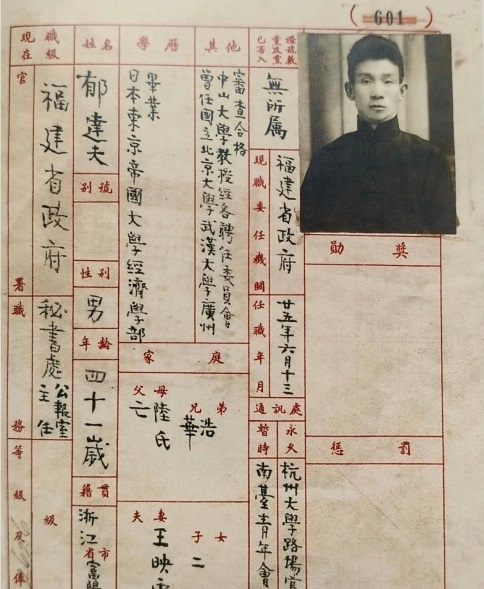 601
現在職級
官署
福建省政府
職務
秘書處
公報室
主任
等級及俸
級
姓名
郁達夫
別號
性別
男
年齡
四十一歲
籍貫
浙江省市富陽
學歷
日本東京帝國大學經濟學部
畢業
其他
曾任國立北京大學武漢大學廣州
中山大學教授經各聘任委員會
審查合格
家庭
父母
亡
陸氏
兄弟
華
浩
夫妻
王映
子女
二
已否入
黨及黨
證號數
無所属
現職委任機關
福建省政府
任職年月
廿五年六月十三
通訊處
暫時
南臺青年會
永久
杭州大學路場官
勛獎
懲罰